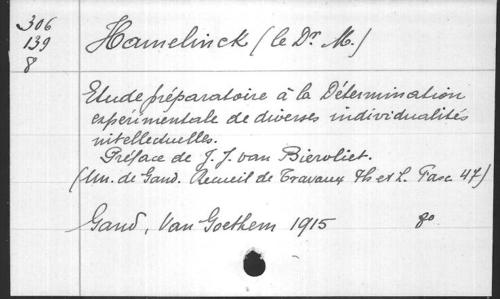 306
139
8
Hamelinck (le Dr. M.)
Etude préparatoire à la Détermination
expérimentale de diverses individualités
intellectuelles.
Préface de J. J. van Biervliet.
(Un. de Gand. Recueil de Travaux Ph et L. Fasc 47)
Gand, Van Goethem 1915 8o